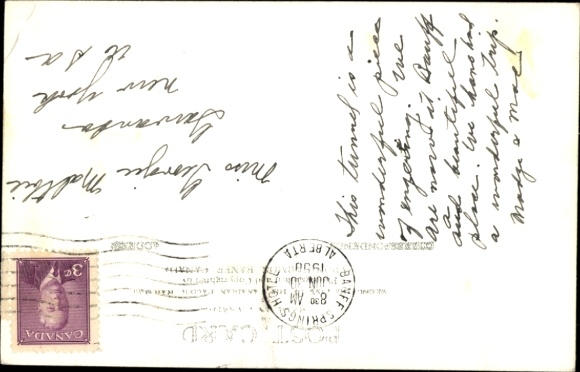 This tunnel is a
wonderful piece
of engering. We
are now at Banff
a
and beautiful
place. We have had
a wonderful trip.
Madge & Mac
Miss Georgie Maltbie
Gowanda
New York
U S A
POST CARD
CORRESPONDENCE
ADDRESS
BANFF SPRINGS HOTEL
830 AM
JUN
1950
ALBERTA
3¢
CANADA